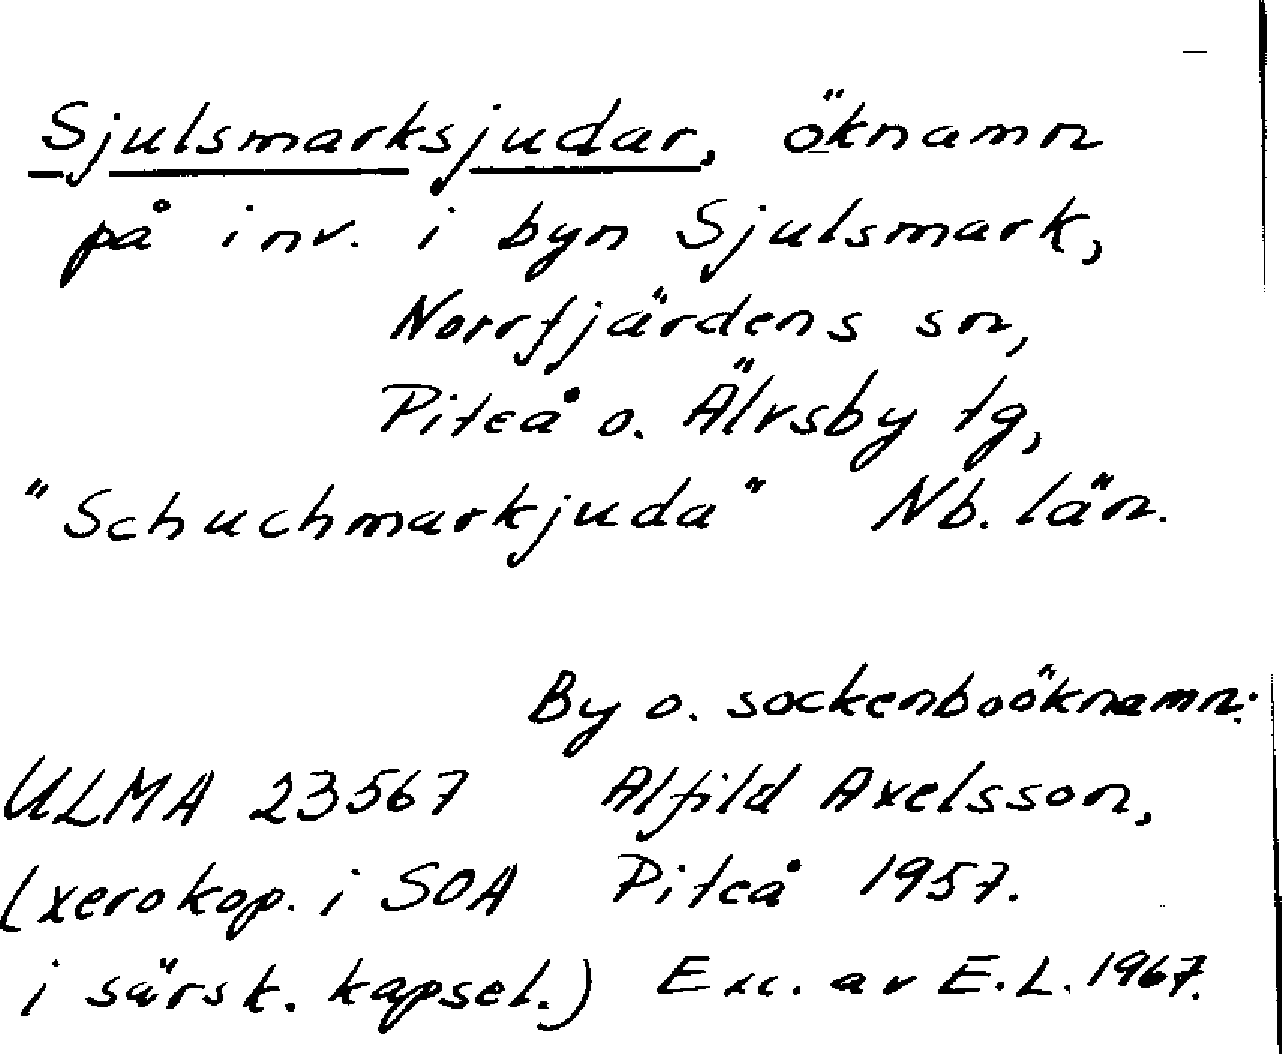 Sjulsmarksjudar, öknamn
på inv. i byn Sjulsmark,
Norrfjärdens sn,
Piteå o. Älvsby tg,
"Schuchmarkjuda" Nb. län.
By o. sockenboöknamn.
ULMA 23567 Alfild Axelsson,
(xerokop. i SOA Piteå 1957.
i särsk. kapsel.) Exc. av E.L. 1967.